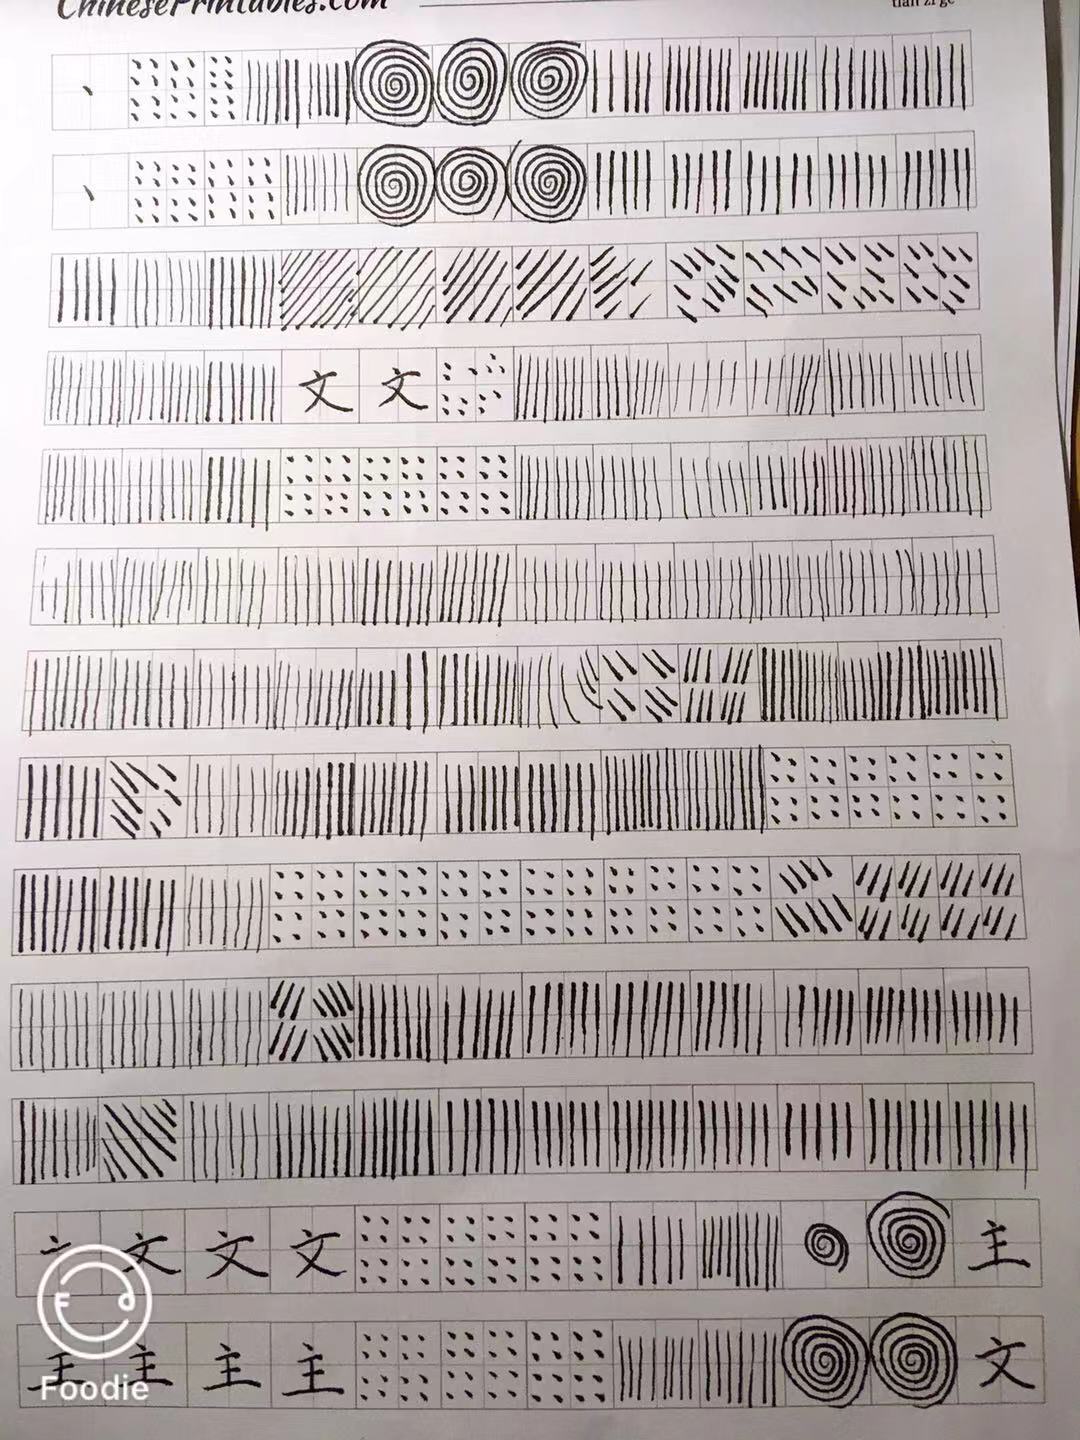 ChinesePrintables.com
tian zi ge
文 文
文 文 文 主
主 主 主 主 文
Foodie